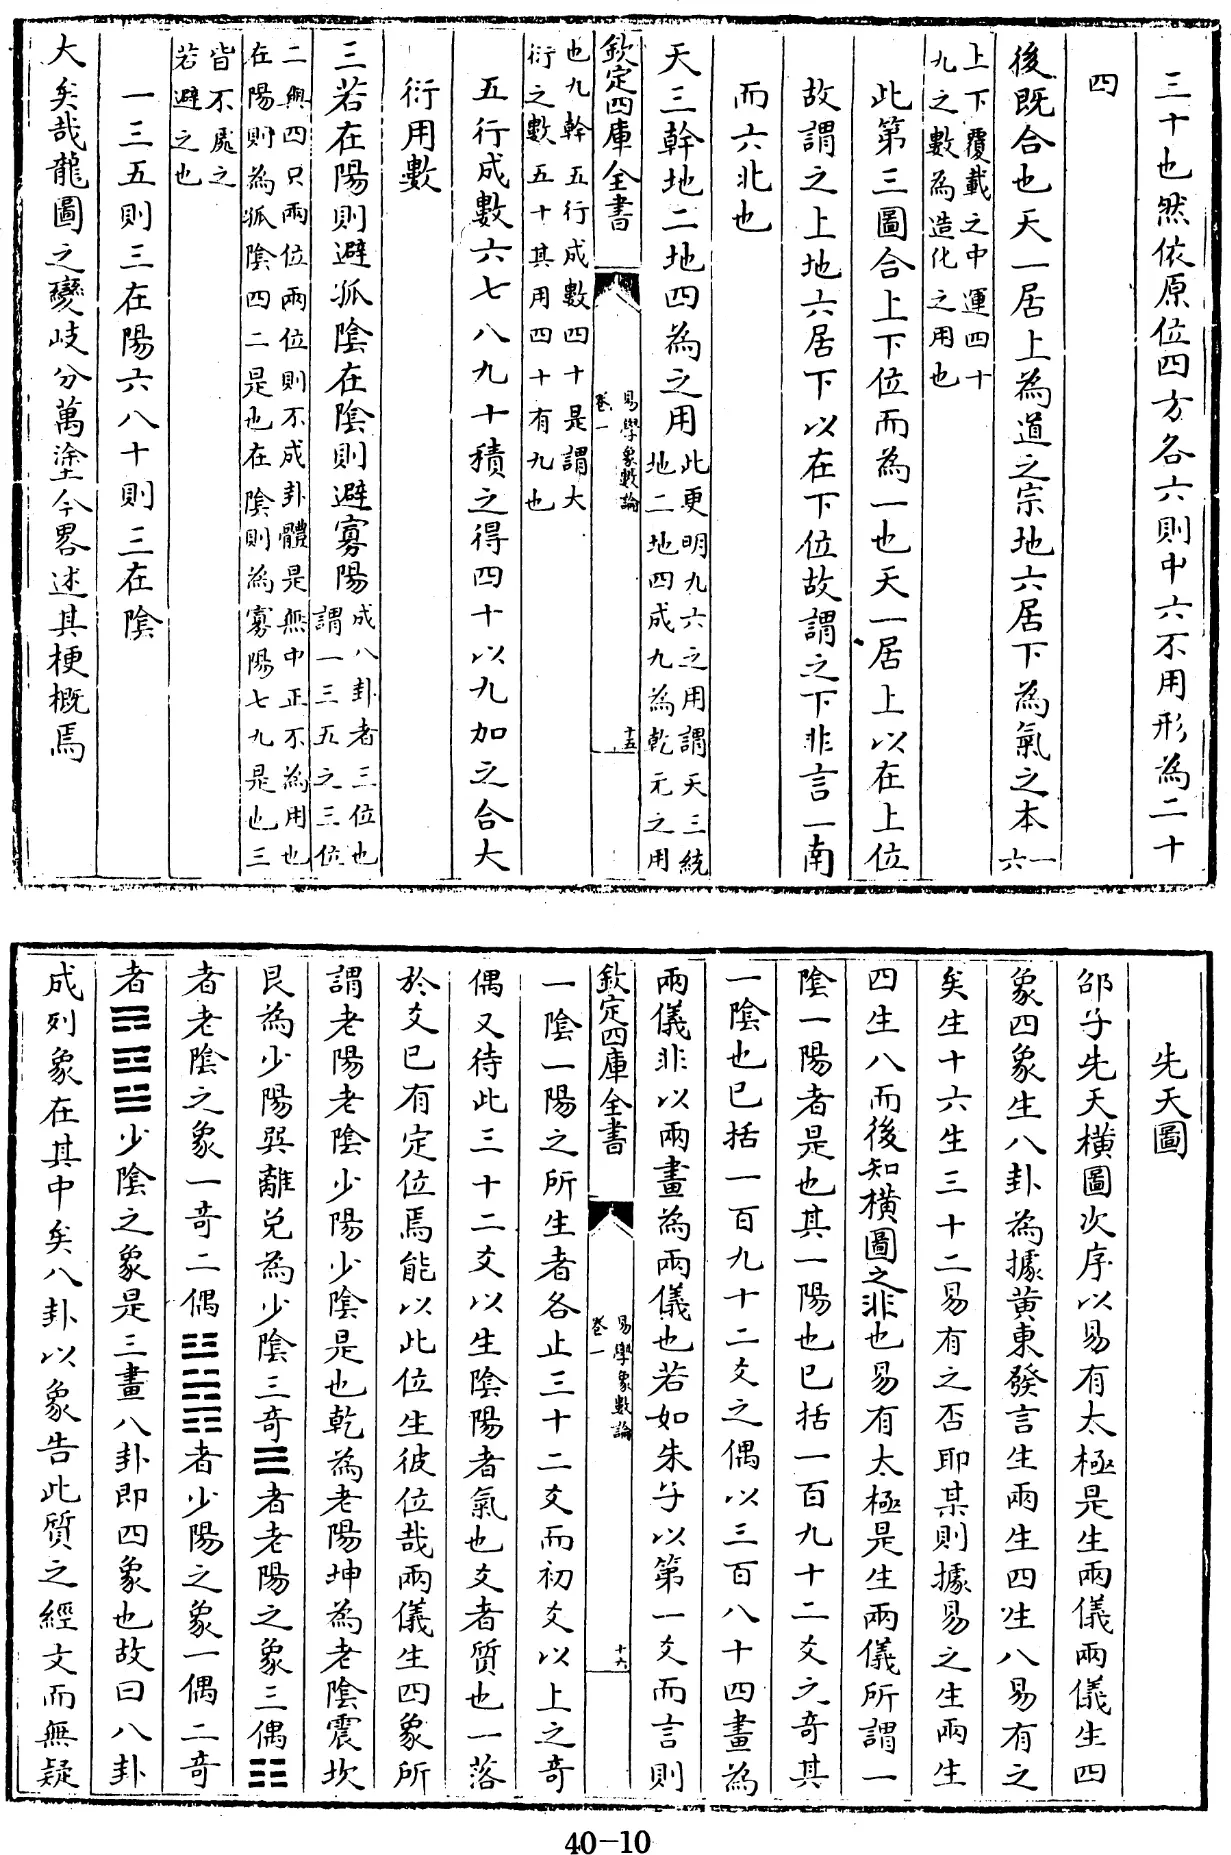 三十也然依原位四方各六則中六不用形為二十
四
後既合也天一居上為道之宗地六居下為氣之本一六
上下覆載之中運四十
九之數為造化之用也
此第三圖合上下位而為一也天一居上以在上位
故謂之上地六居下以在下位故謂之下非言一南
而六北也
天三幹地二地四為之用此更明九六之用謂天三統
地二地四成九為乾元之用
欽定四庫全書
易學象數論
卷一
十五
也九幹五行成數四十是謂大
衍之數五十其用四十有九也
五行成數六七八九十積之得四十以九加之合大
衍用數
三若在陽則避孤陰在陰則避寡陽成八卦者三位也
謂一三五之三位
二與四只兩位兩位則不成卦體是無中正不為用也
在陽則為孤陰四二是也在陰則為寡陽七九是也三
皆不處之
若避之也
一三五則三在陽六八十則三在陰
大矣哉龍圖之變岐分萬塗今畧述其梗概焉
先天圖
邵子先天橫圖次序以易有太極是生兩儀兩儀生四
象四象生八卦為據黄東發言生兩生四生八易有之
矣生十六生三十二易有之否耶某則據易之生兩生
四生八而後知橫圖之非也易有太極是生兩儀所謂一
陰一陽者是也其一陽也已括一百九十二爻之奇其
一陰也已括一百九十二爻之偶以三百八十四畫為
兩儀非以兩畫為兩儀也若如朱子以第一爻而言則
欽定四庫全書
易學象數論
卷一
十六
一陰一陽之所生者各止三十二爻而初爻以上之奇
偶又待此三十二爻以生陰陽者氣也爻者質也一落
於爻已有定位焉能以此位生彼位哉兩儀生四象所
謂老陽老陰少陽少陰是也乾為老陽坤為老陰震坎
艮為少陽巽離兌為少陰三奇☰者老陽之象三偶☷
者老陰之象一奇二偶☳☵☶者少陽之象一偶二奇
者☴☲☱少陰之象是三畫八卦即四象也故曰八卦
成列象在其中矣八卦以象告此質之經文而無疑
40-10